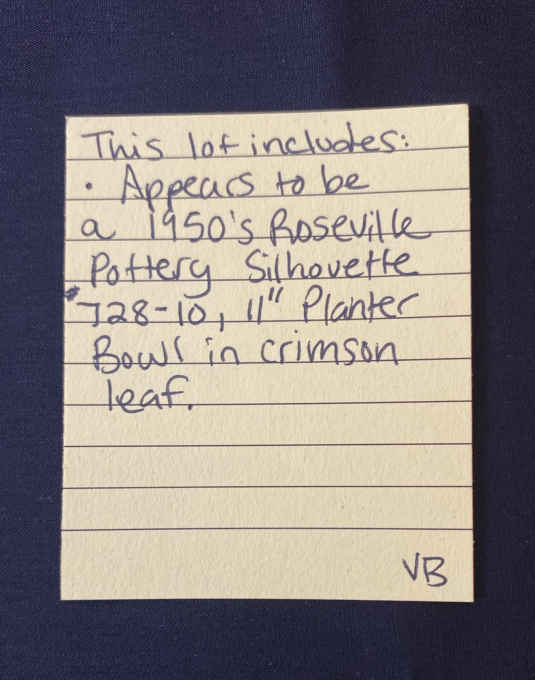 This lot includes:
• Appears to be
a 1950's Roseville
Pottery Silhouette
#728-10, 11" Planter
Bowl in crimson
leaf.
VB